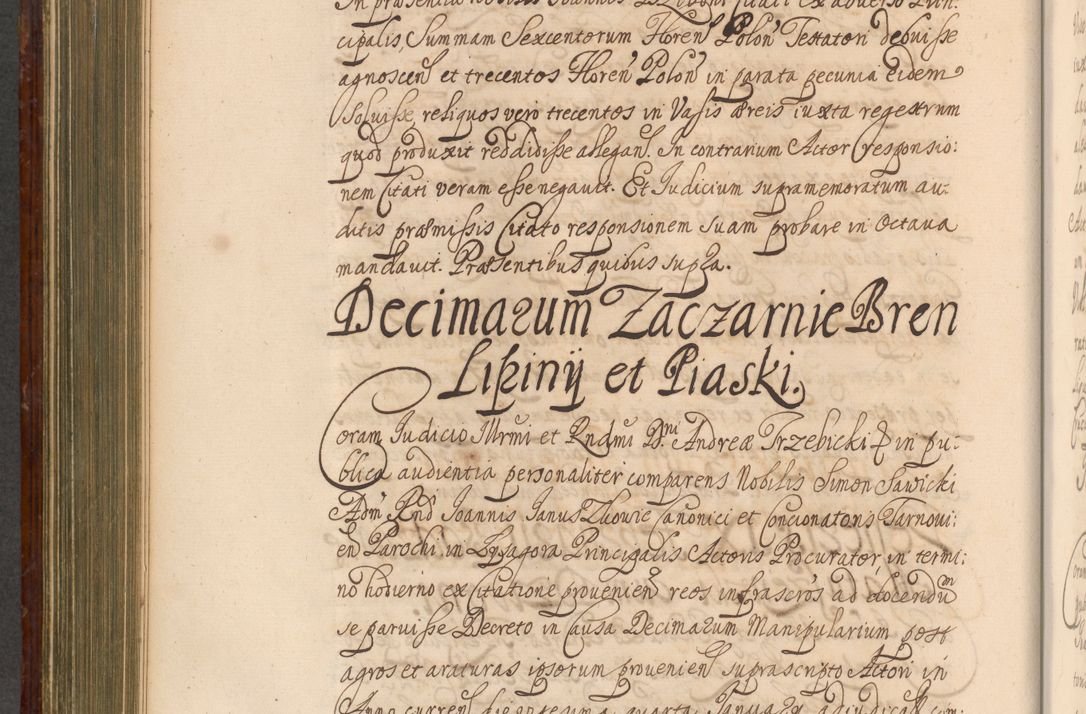 cipalis, Summam Sexcentorum Floren Polon Testatori debuisse
agnoscens et trecentos Floren Polon in parata pecunia eidem
solvisse, reliquos vero trecentos in Vasis æreis iuxta regestrum
quod produxit reddidisse allegans. In contrarium Actor responsio:
nem Citati veram esse negavit. Et Iudicium supramemoratum au:
ditis præmissis Citato responsionem suam probare in Octava
mandavit. Præsentibus quibus supra.
Decimarum Zaczarnie Bren
Lipinÿ et Piaski.
Coram Iudicio Illrmi et Rndmi Dni Andreæ Trzebicki in pu:
blica audientia personaliter comparens Nobilis Simon Sawicki
Adm Rnd Ioannis Ianuszkowic Canonici et Concionatoris Tarnovi:
en Parochi in Lysagora Principalis Actoris Procurator, in termi:
no hodierno ex Citatione provenien reos infrascros ad docendum
se paruisse Decreto in Causa Decimarum Manipularium post
agros et araturas ipsorum provenien suprascripto Actori in
Anno curren die